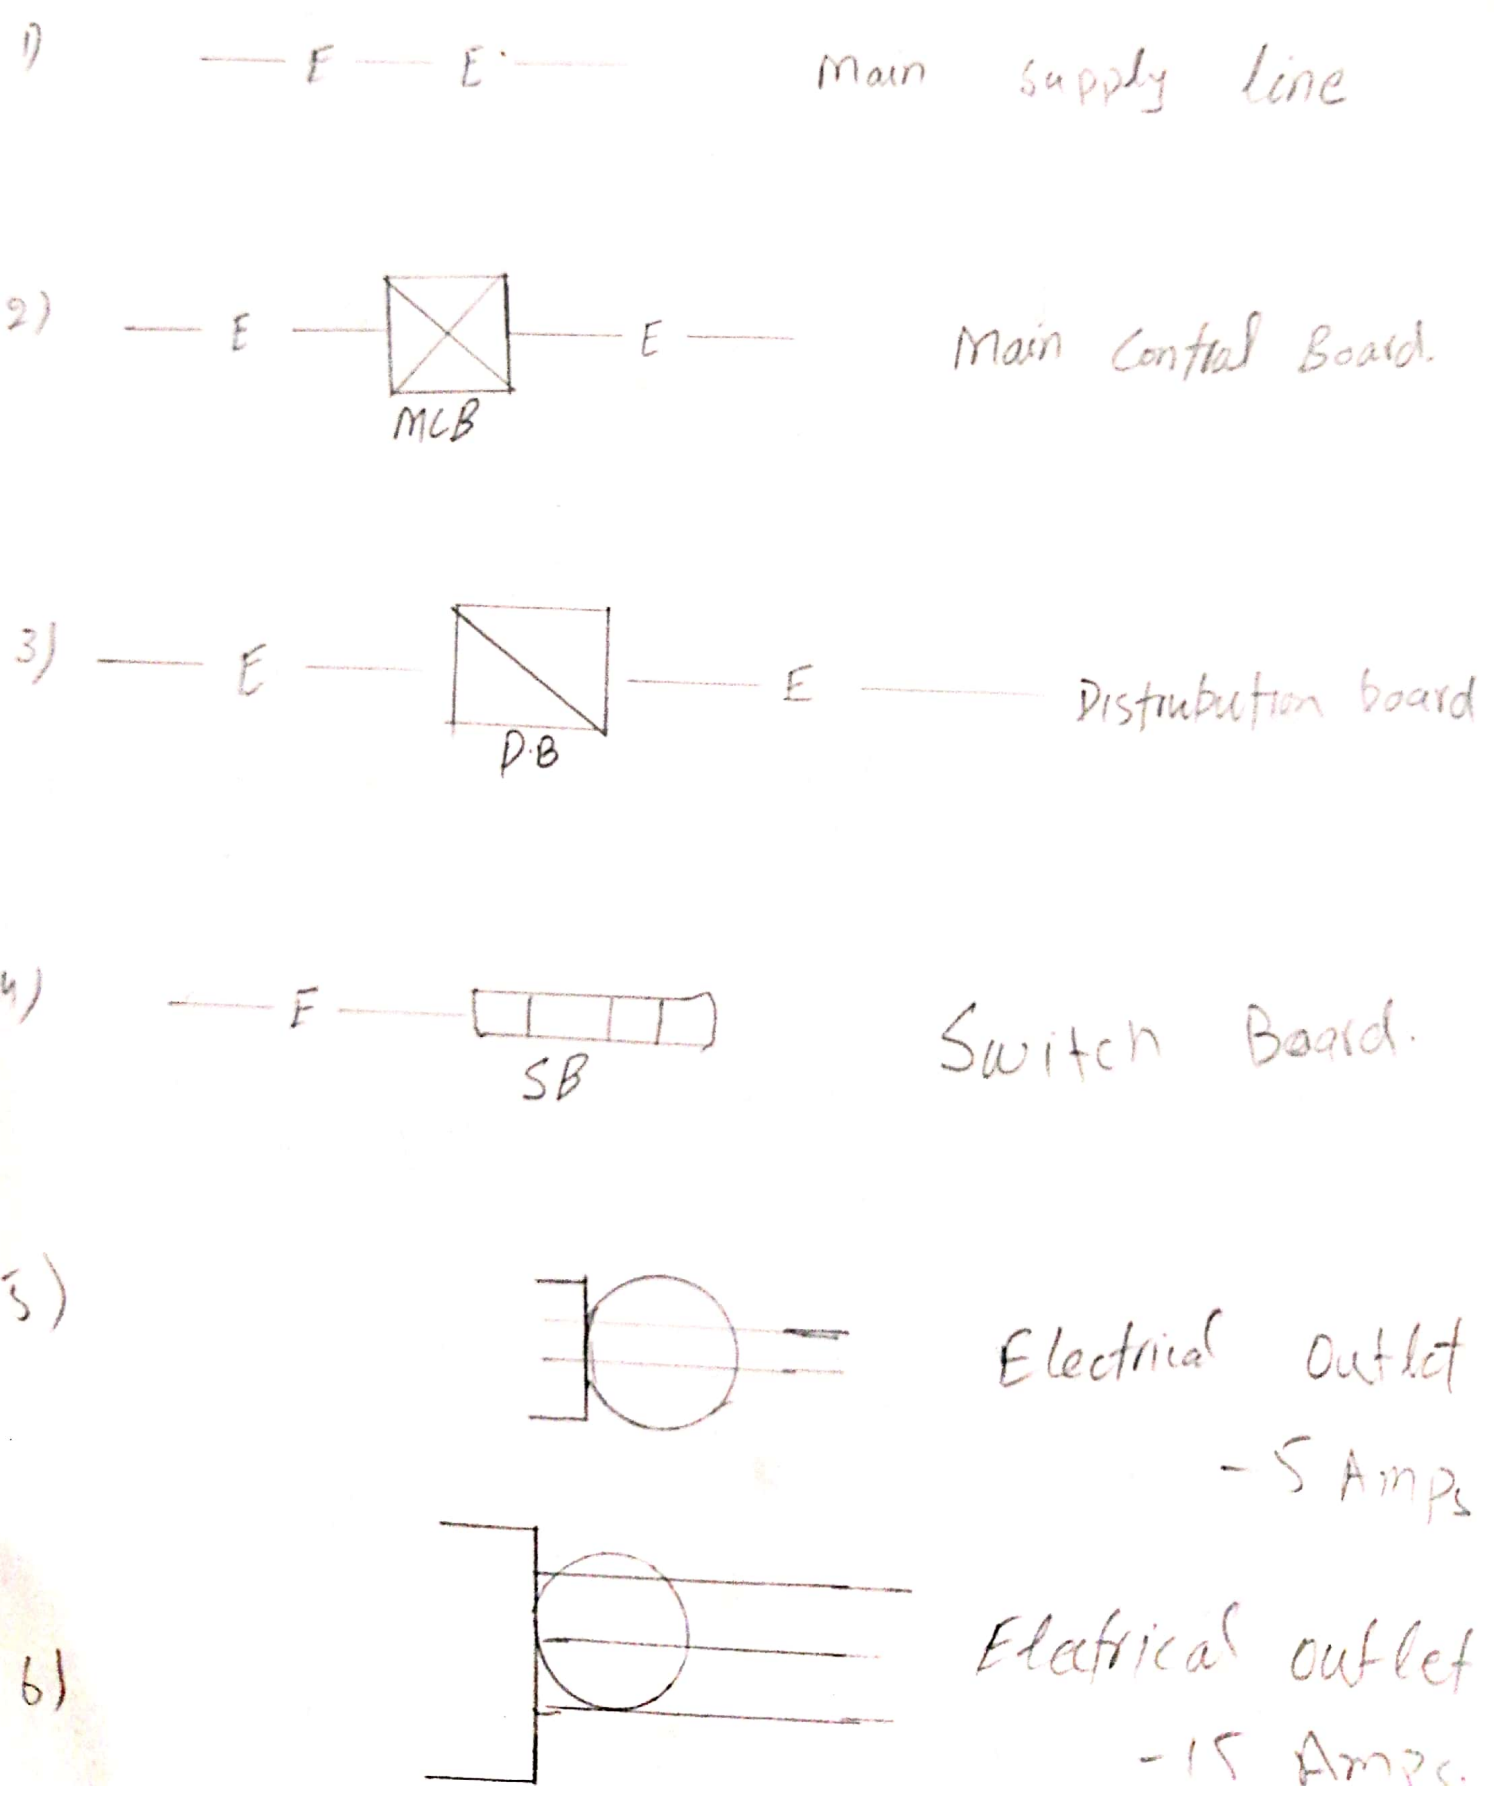 1) E E Main supply line
2) E E Main Control Board.
MCB
3) E E Distrubution board
D.B
4) E Switch Board.
SB
5) Electrical Outlet
- 5 Amps
6) Electrical outlet
- 15 Amps.